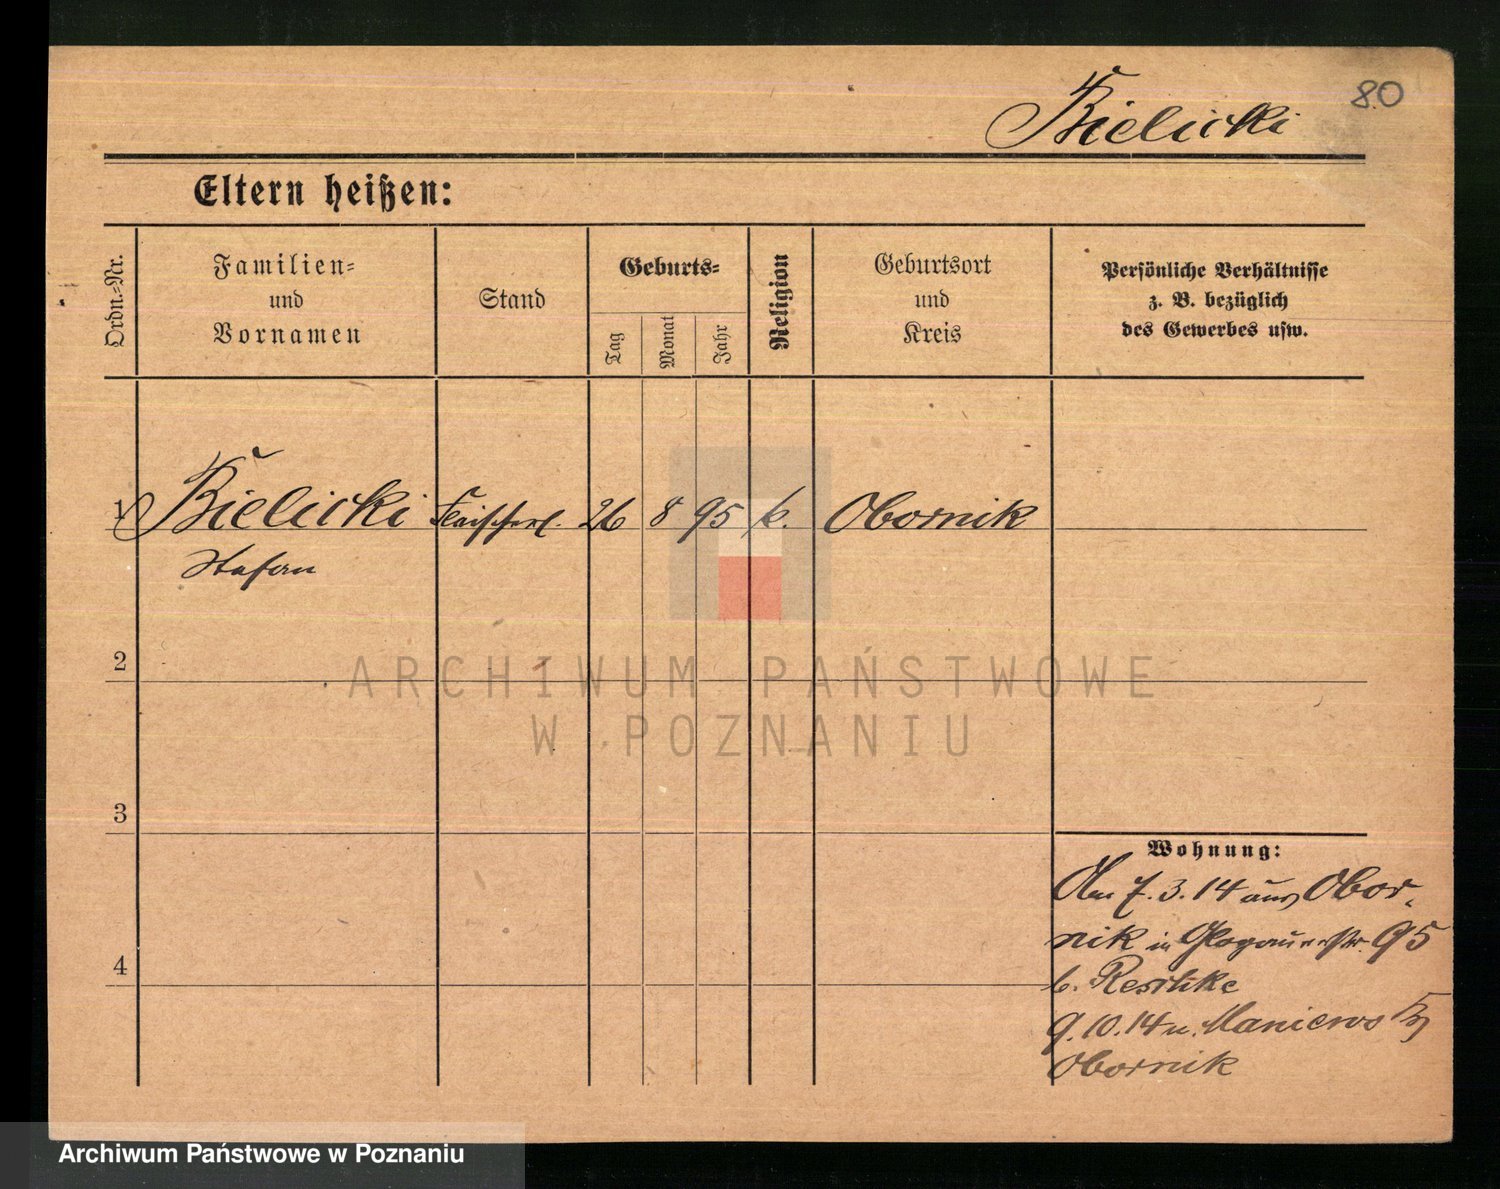 80
Bielicki
Eltern heißen:
Ordn.-Nr.
Familien-
und
Vornamen
Stand
Geburts-
Tag
Monat
Jahr
Religion
Geburtsort
und
Kreis
Persönliche Verhältnisse
z. B. bezüglich
des Gewerbes usw.
1 Bielicki Fleischerl. 26 8 95 k. Obornik
Stefan
2
3
4
Wohnung:
Am 7.3.14 aus Obor-
nik in Glogauerstr. 95
b.
9.10.14 n. Maniewo Kr
Obornik
ARCHIWUM PAŃSTWOWE
W POZNANIU
Archiwum Państwowe w Poznaniu